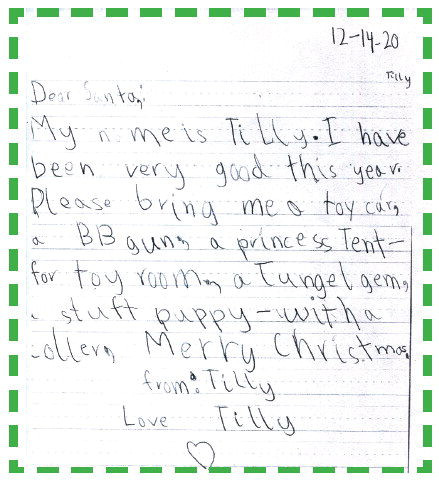 12-14-20
Tilly
Dear Santa,
My n me is Tilly. I have
been very good this year.
Please bring me a toy car,
a BB gun, a princess Tent-
for toy room, a Tungel gem,
a stuff puppy-with a
coller, Merry Christmas
from: Tilly
Love Tilly